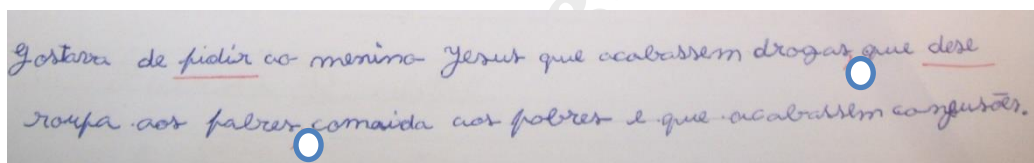 Gostava de pidir ao menino Jesus que acabassem drogas, que dese
roupa aos pabres, comaida aos pobres e que acabassem confusões.